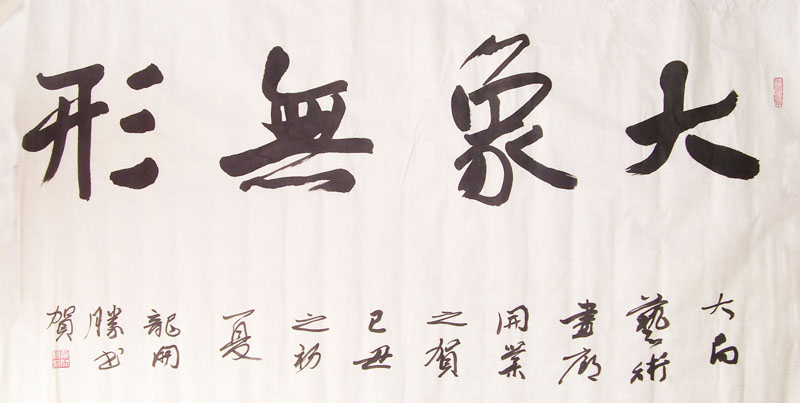 大象無形
大向
藝術
畫廊
開業
之賀
己丑
之初
夏
龍開
勝書
賀